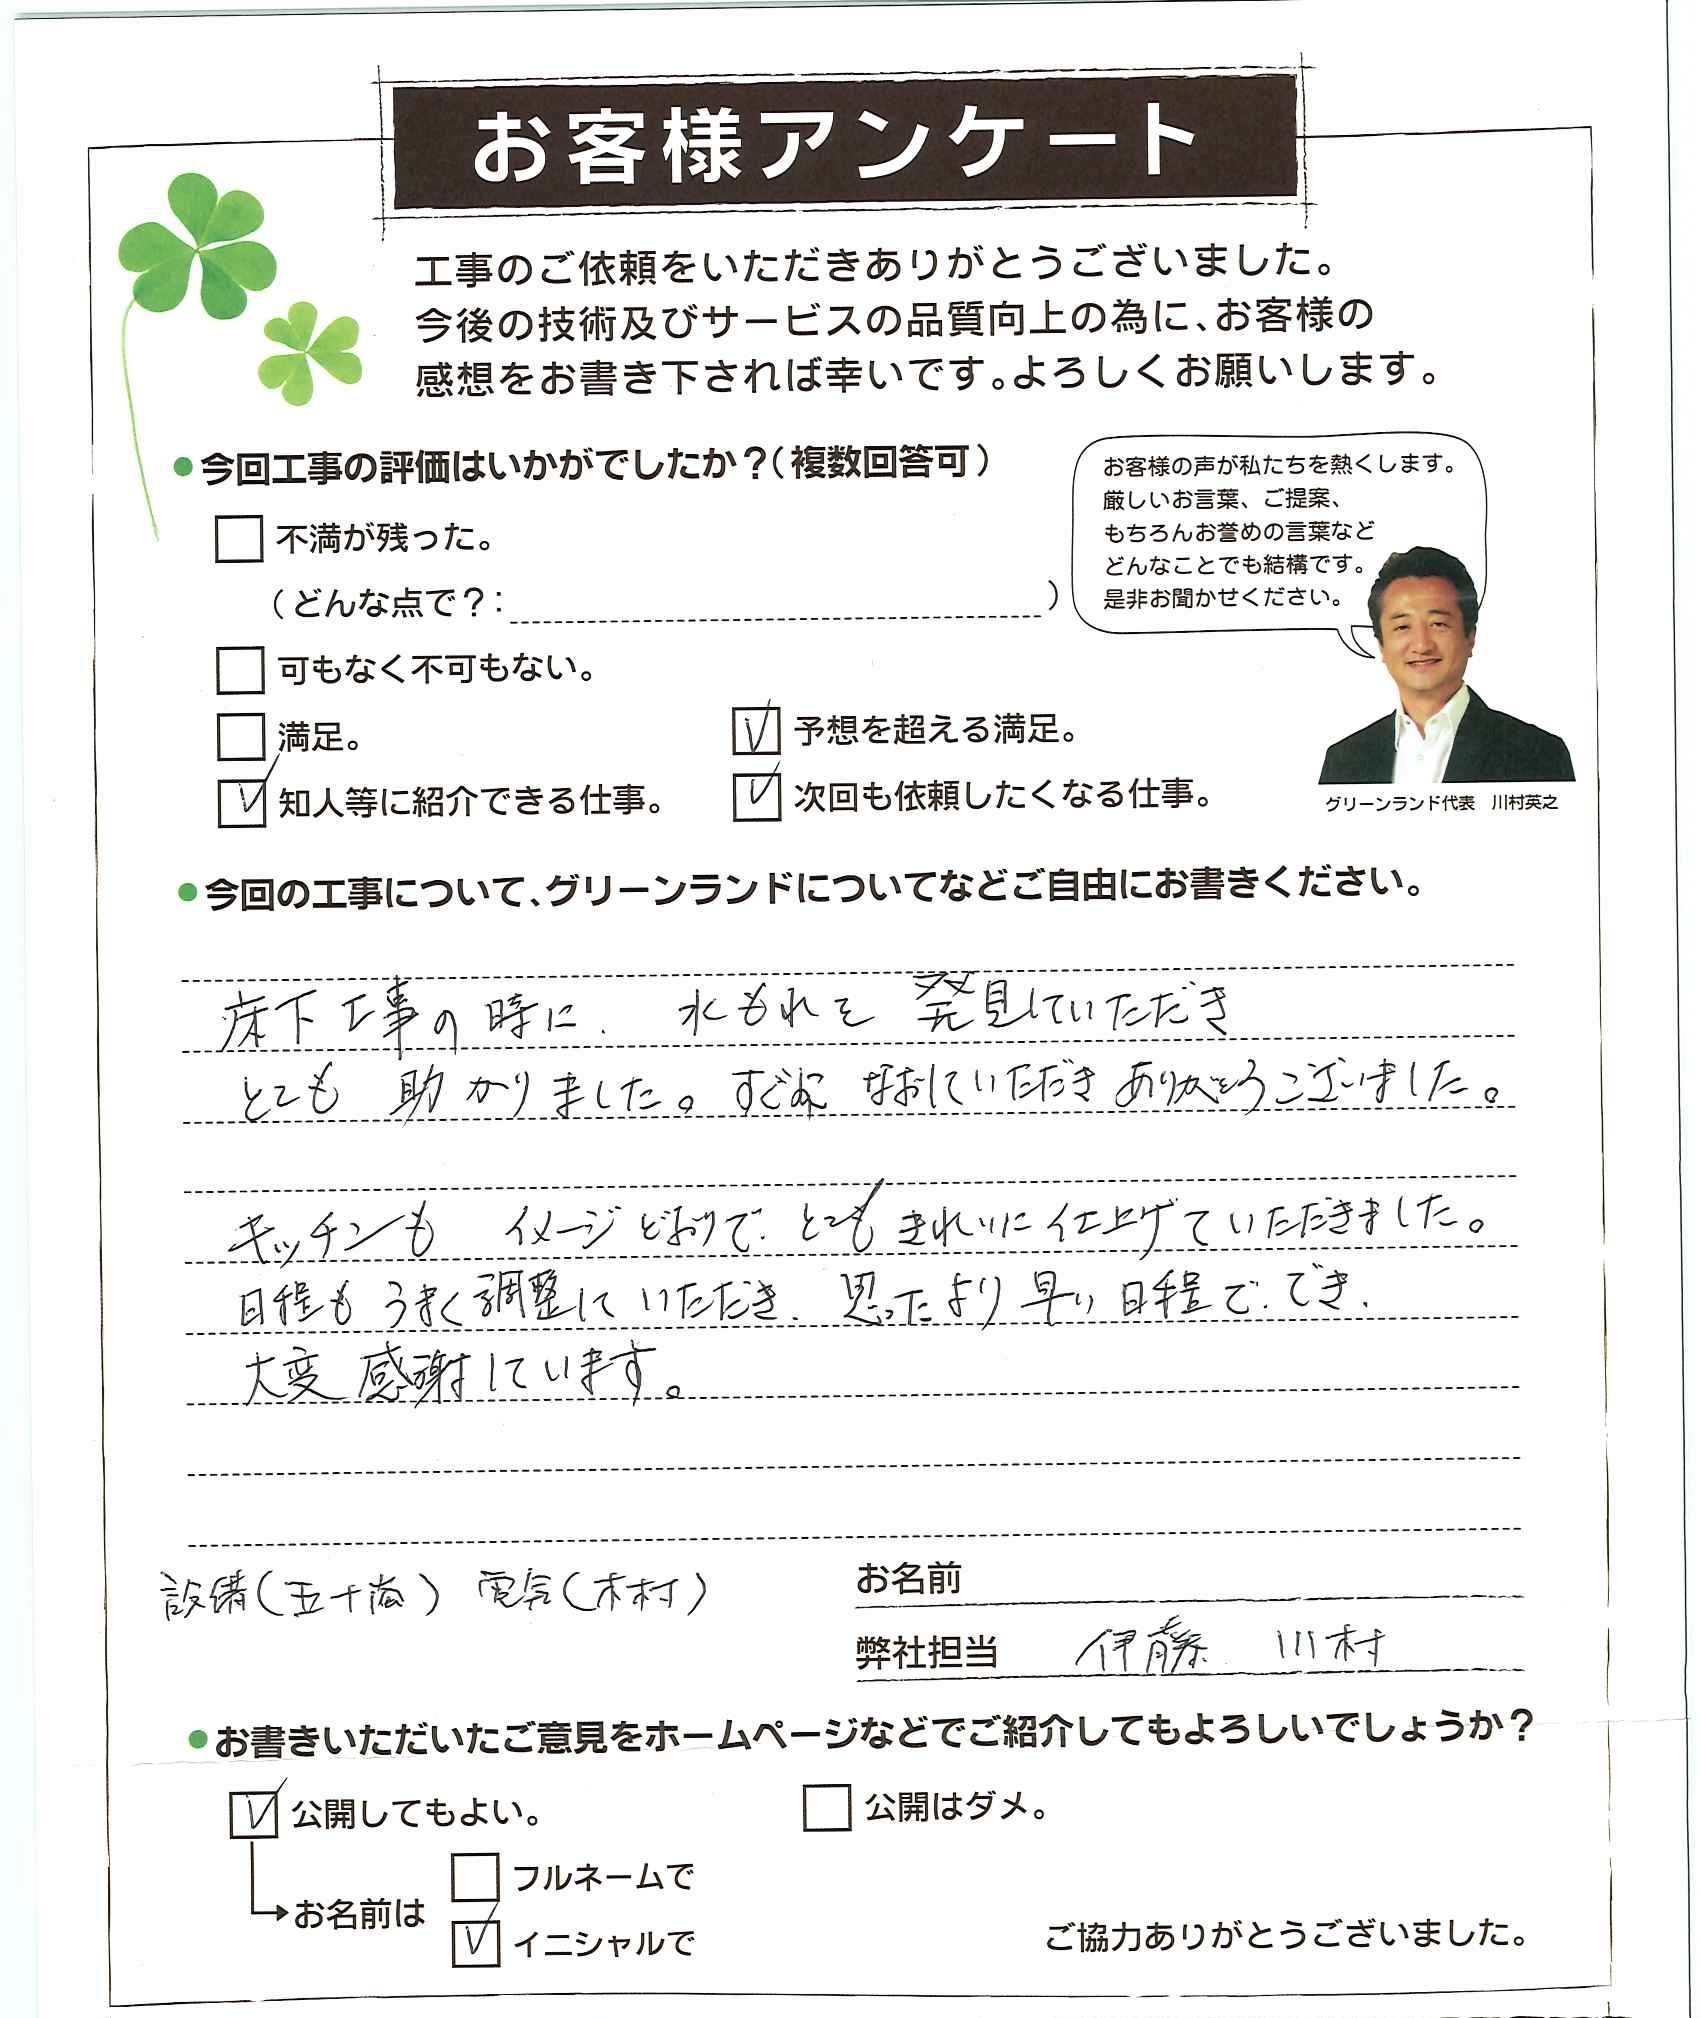 お客様アンケート
工事のご依頼をいただきありがとうございました。
今後の技術及びサービスの品質向上の為に、お客様の
感想をお書き下されば幸いです。よろしくお願いします。
●今回工事の評価はいかがでしたか？(複数回答可)
不満が残った。
(どんな点で？: )
可もなく不可もない。
満足。
予想を超える満足。
知人等に紹介できる仕事。
次回も依頼したくなる仕事。
お客様の声が私たちを熱くします。
厳しいお言葉、ご提案、
もちろんお誉めの言葉など
どんなことでも結構です。
是非お聞かせください。
グリーンランド代表 川村英之
●今回の工事について、グリーンランドについてなどご自由にお書きください。
床下工事の時に、水もれを発見していただき
とても助かりました。すぐになおしていただきありがとうございました。
キッチンも イメージどおりで、とてもきれいに仕上げていただきました。
日程もうまく調整していただき、思ったより早い日程で、でき、
大変感謝しています。
設備(五十嵐) 電気(木村)
お名前
弊社担当 伊藤 川村
●お書きいただいたご意見をホームページなどでご紹介してもよろしいでしょうか？
公開してもよい。
公開はダメ。
お名前は
フルネームで
イニシャルで
ご協力ありがとうございました。